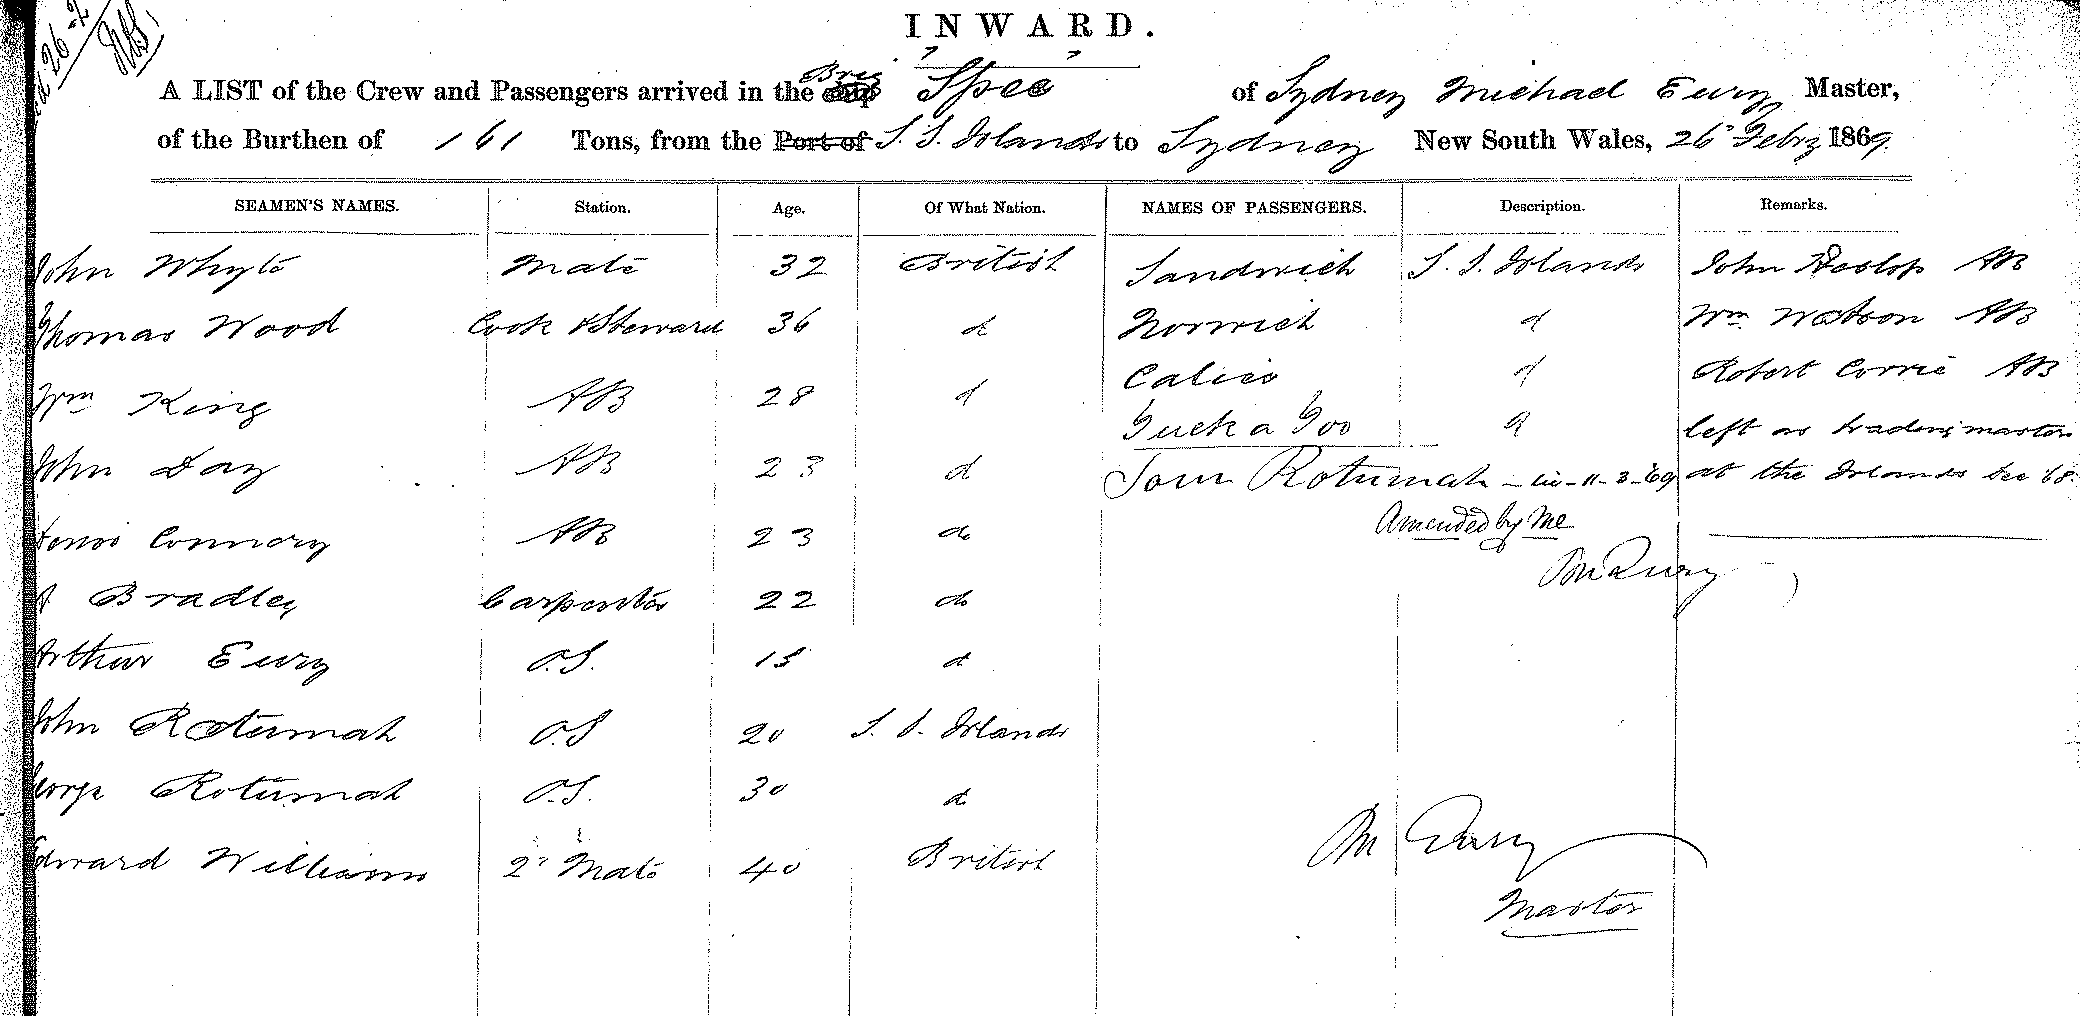 INWARD.
A LIST of the Crew and Passengers arrived in the Brig Spec of Sydney Michael Eury Master,
of the Burthen of 161 Tons, from the Port of S. S. Islands to Sydney New South Wales, 26 Febry 1869.
SEAMEN'S NAMES. Station. Age. Of What Nation. NAMES OF PASSENGERS. Description. Remarks.
John Whyte Mate 32 British Sandwich S. S. Islands John Heslop AB
Thomas Wood Cook & Steward 36 d Norwich d Wm Watson AB
Wm King AB 28 d Calico d Robert Corrie AB
John Day AB 23 d d left as trading master
Tom Rotumah 11-3-69 at the Islands Dec 68
Connery AB 23 do Amended by Me
M Eury
Bradley Carpenter 22 do
Arthur Eury O.S. 15 d
John Rotumah O.S 20 S. S. Islands
George Rotumah O.S. 30 d
Edward Williams 2d Mate 40 British M Eury
Master